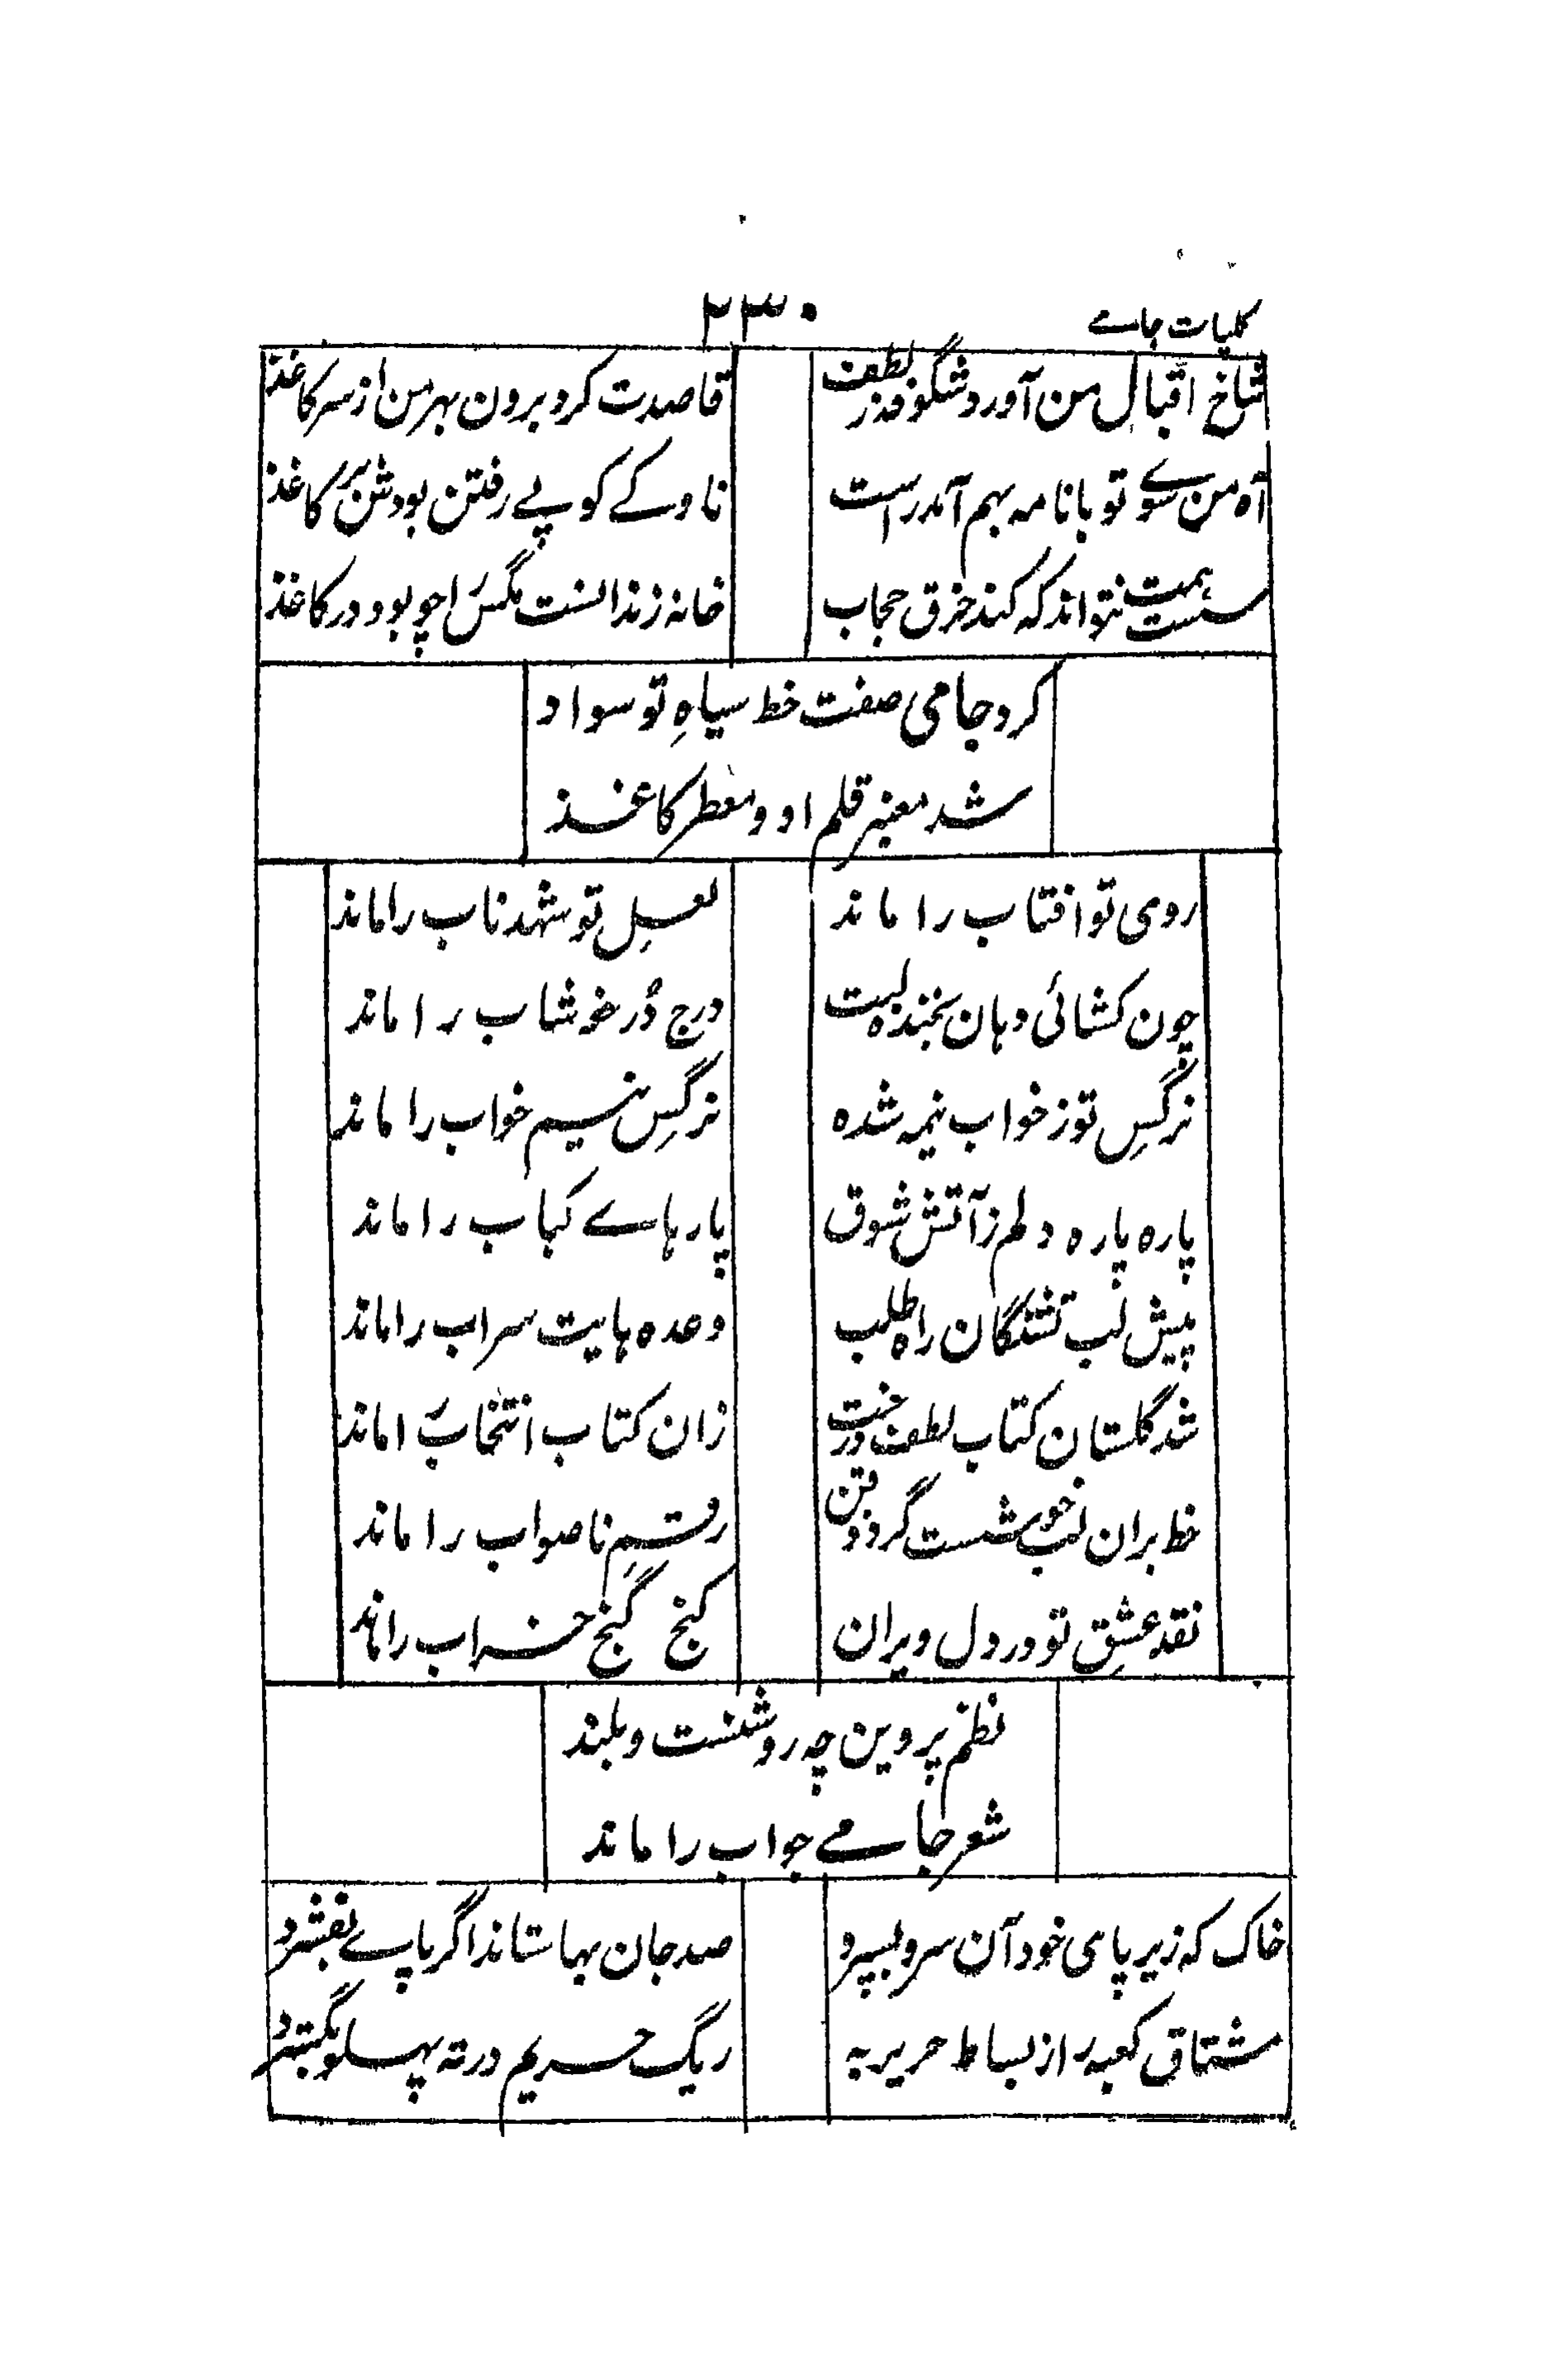 کلیات جامے
۲۳۰
شاخ اقبال من آورد شگوفه ز لطف
قاصدت کرد برون بهر من از سر کاغذ
آه من سوے تو با نامه بهم آمد راست
ناوکے کو پے رفتن بودش پر کاغذ
سست همت نتواند که کند خرق حجاب
خانه زندانست مگس را چو بود در کاغذ
کرد جامی صفت خط سیاهِ تو سواد
شد معنبر قلم او و معطر کاغذ
روی تو افتاب را ماند
لعلِ تو شهد ناب را ماند
چون کشائی دهان بخنده لبت
درج دُر خوشاب را ماند
نرگسِ تو ز خواب نیمه شده
نرگسِ نیم خواب را ماند
پاره پاره دلم ز آتش شوق
پارهاے کباب را ماند
پیش لب تشنگان راه طلب
وعده هایت سراب را ماند
شد گلستان کتاب لطف و رخت
زان کتاب انتخاب را ماند
خط بران لب خوشست گرد ذقن
رقمِ ناصواب را ماند
نقد عشقِ تو در دل ویران
گنج کُنج خراب را ماند
نظم پروین چه روشنست و بلند
شعر جامے جواب را ماند
خاک که زیر پای خود آن سرو بسپرد
صد جان بها ستاند اگر پاے بفشرد
مشتاق کعبه را ز بساط حریر به
ریگ حریم در ته پهلو بگسترد